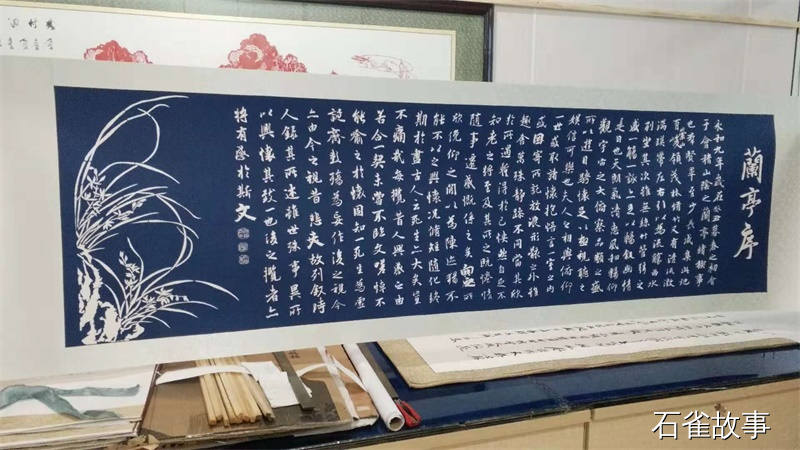 蘭亭序
永和九年歲在癸丑暮春之初會
于會稽山陰之蘭亭脩禊事
也羣賢畢至少長咸集此地
有崇山峻領茂林脩竹又有清流激
湍暎帶左右引以為流觴曲水
列坐其次雖無絲竹管弦之
盛一觴一詠亦足以暢敘幽情
是日也天朗氣清惠風和暢仰
觀宇宙之大俯察品類之盛
所以遊目騁懷足以極視聽之
娛信可樂也夫人之相與俯仰
一世或取諸懷抱悟言一室之內
或因寄所託放浪形骸之外雖
趣舍萬殊靜躁不同當其欣
於所遇蹔得於己怏然自足不
知老之將至及其所之既惓情
隨事遷感慨係之矣向之所
欣俛仰之間以為陳迹猶不
能不以之興懷況脩短隨化終
期於盡古人云死生亦大矣豈
不痛哉每攬昔人興感之由
若合一契未嘗不臨文嗟悼不
能喻之於懷固知一死生為虛
誕齊彭殤為妄作後之視今
亦由今之視昔悲夫故列敘時
人錄其所述雖世殊事異所
以興懷其致一也後之攬者亦
將有感於斯文
石雀故事